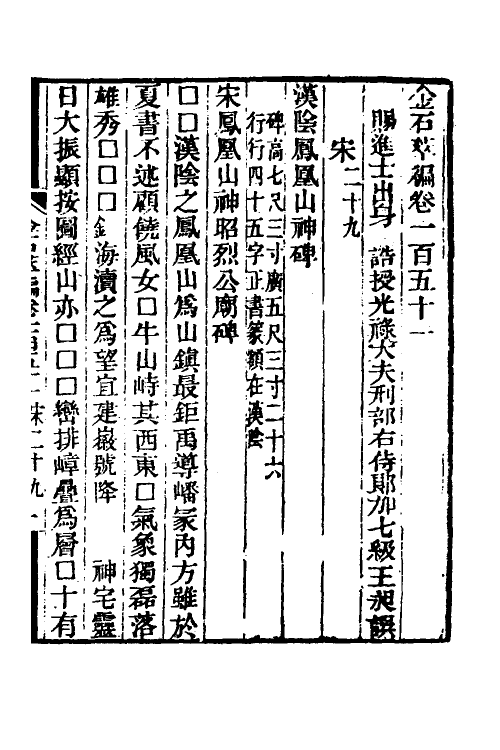 金石萃編卷一百五十一
賜進士出身 誥授光祿大夫刑部右侍郎加七級王昶譔
宋二十九
漢陰鳳凰山神碑
碑高七尺三寸廣五尺三寸二十六
行行四十五字正書篆額在漢陰
宋鳳凰山神昭烈公廟碑
□□漢陰之鳳凰山為山鎮最鉅禹導嶓冢內方雖於
夏書不述顧饒風女□牛山峙其西東□氣象獨磊落
雄秀□□□錀海瀆之為望宜建嶽號降 神宅靈
日大振顯按圖經山亦□□□巒排嶂疊為層□十有
金石萃編卷一百五十一 宋二十九 一